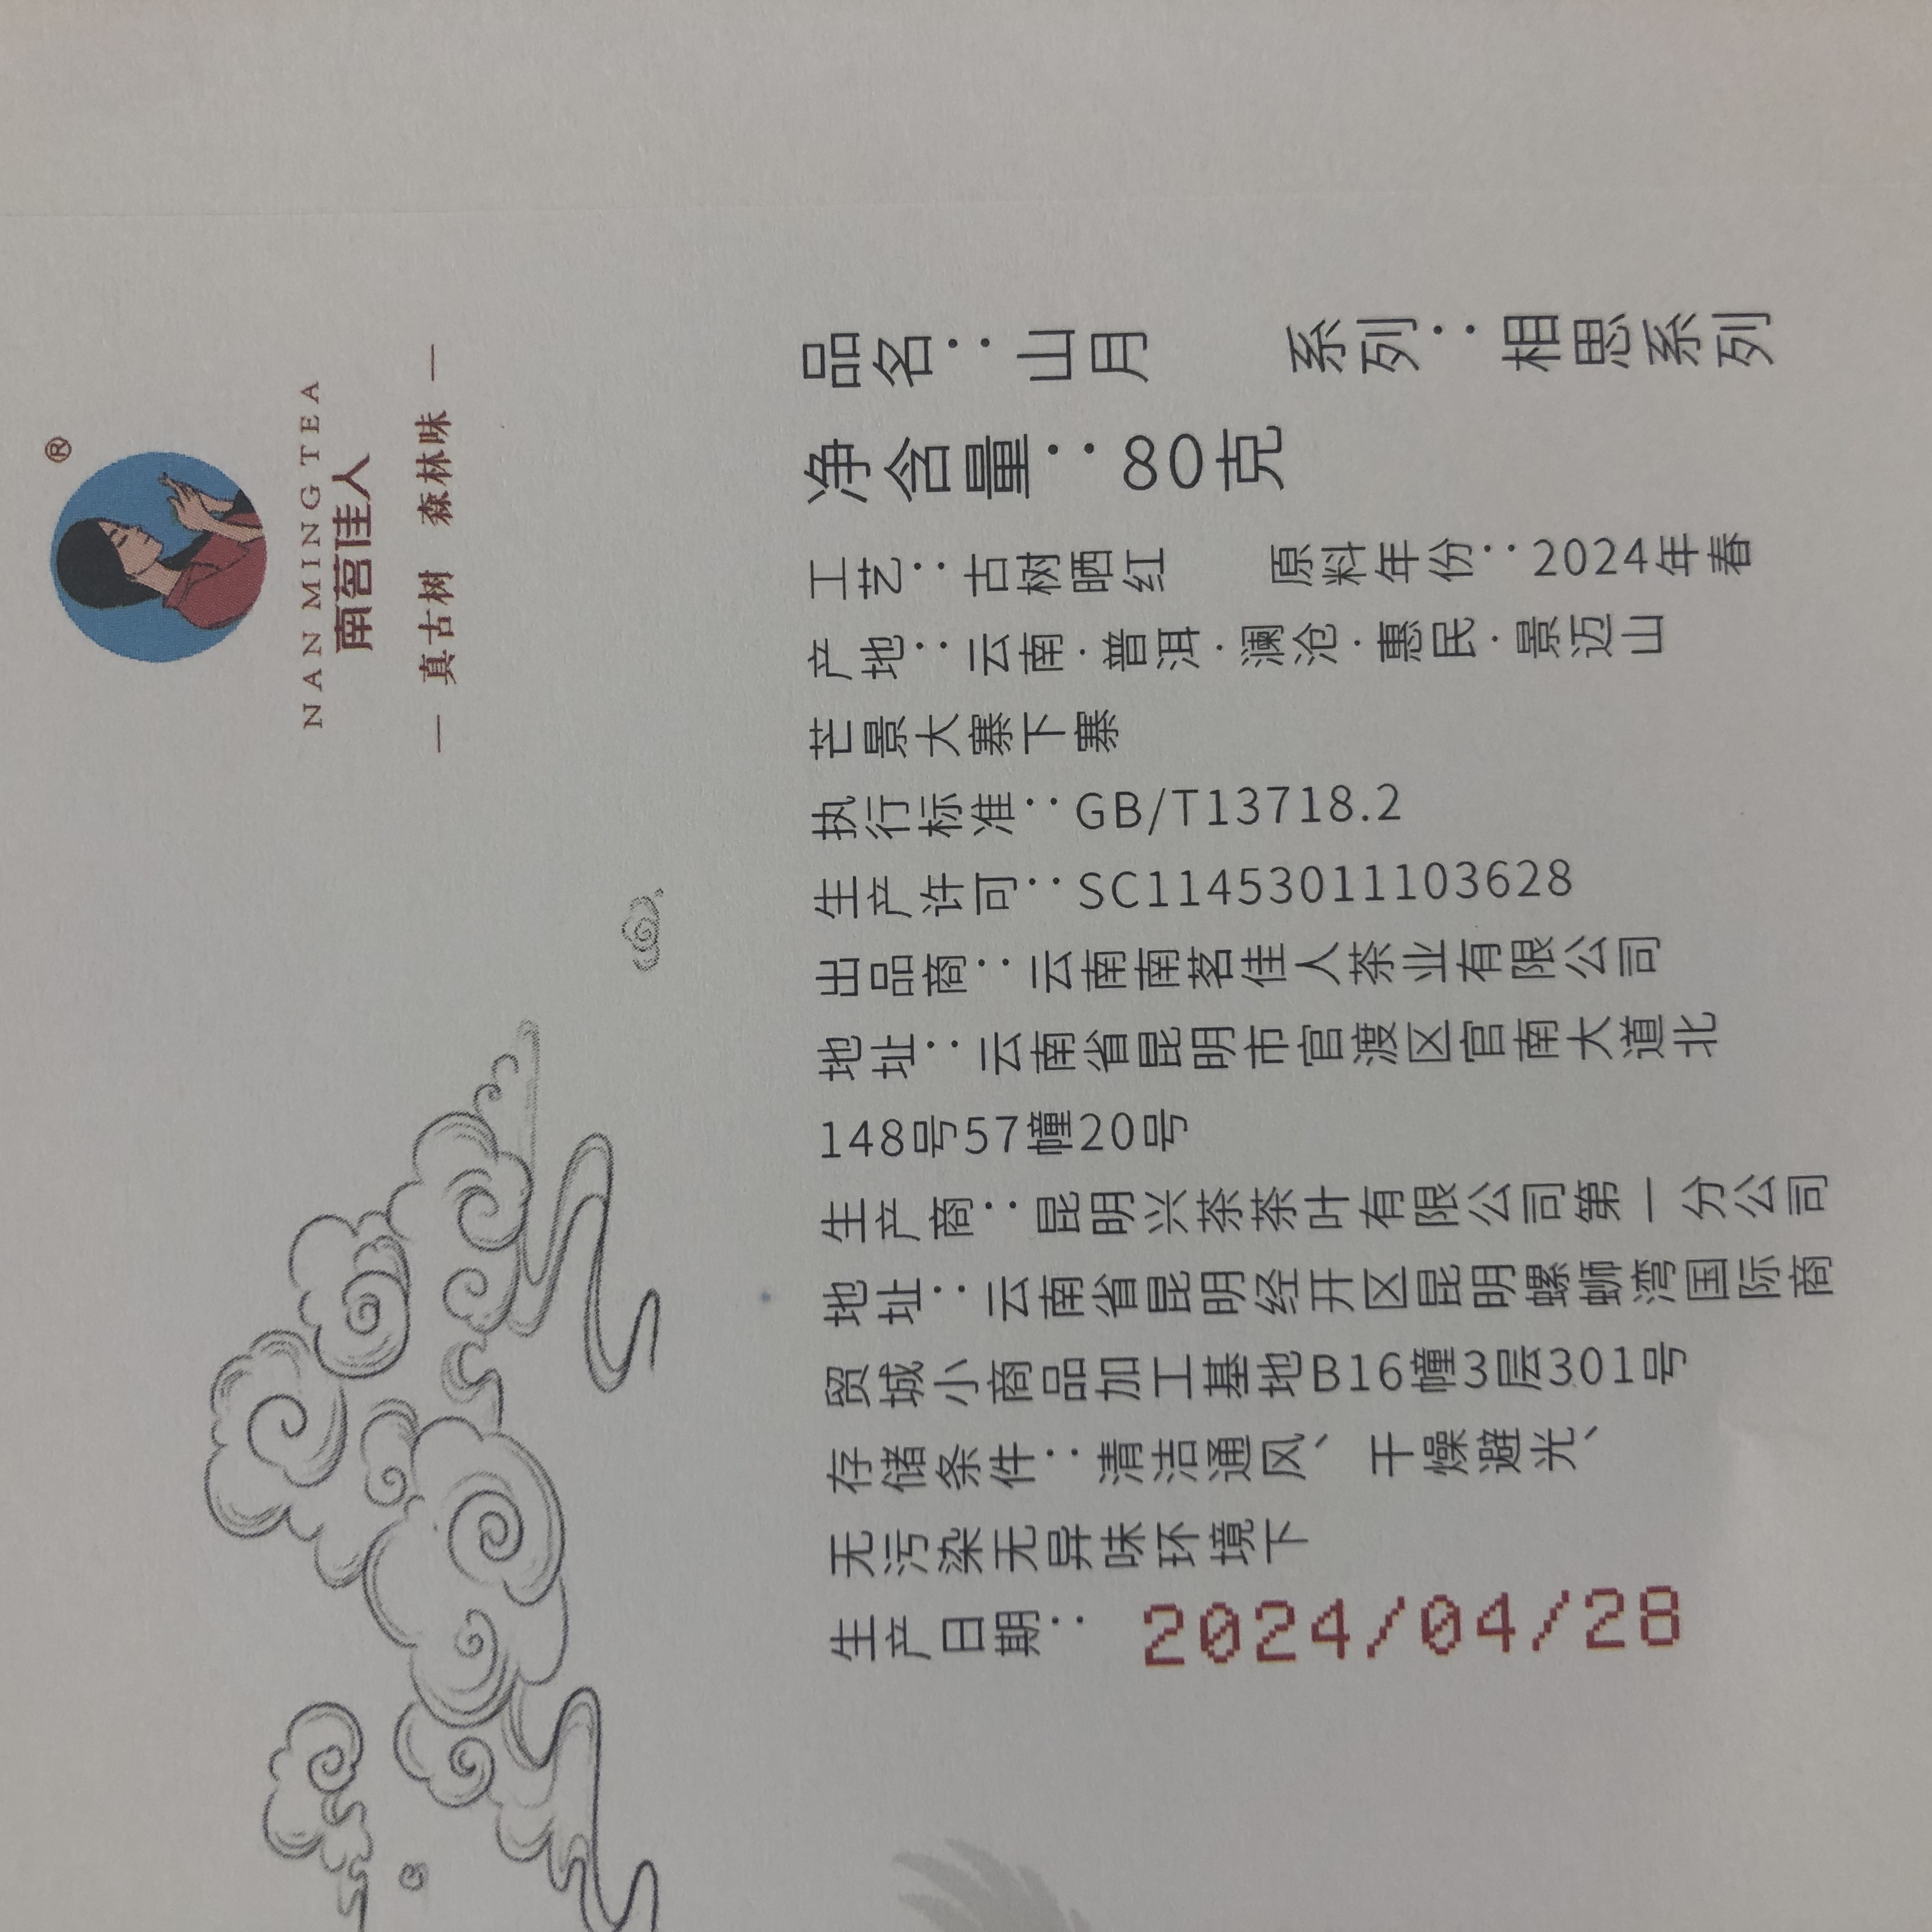 ®
NAN MING TEA
南茗佳人
— 真古树 森林味 —
品名：山月 系列：相思系列
净含量：80克
工艺：古树晒红 原料年份：2024年春
产地：云南·普洱·澜沧·惠民·景迈山
芒景大寨下寨
执行标准：GB/T13718.2
生产许可：SC11453011103628
出品商：云南南茗佳人茶业有限公司
地址：云南省昆明市官渡区官南大道北
148号57幢20号
生产商：昆明兴茶茶叶有限公司第一分公司
地址：云南省昆明经开区昆明螺蛳湾国际商
贸城小商品加工基地B16幢3层301号
存储条件：清洁通风、干燥避光、
无污染无异味环境下
生产日期：2024/04/28